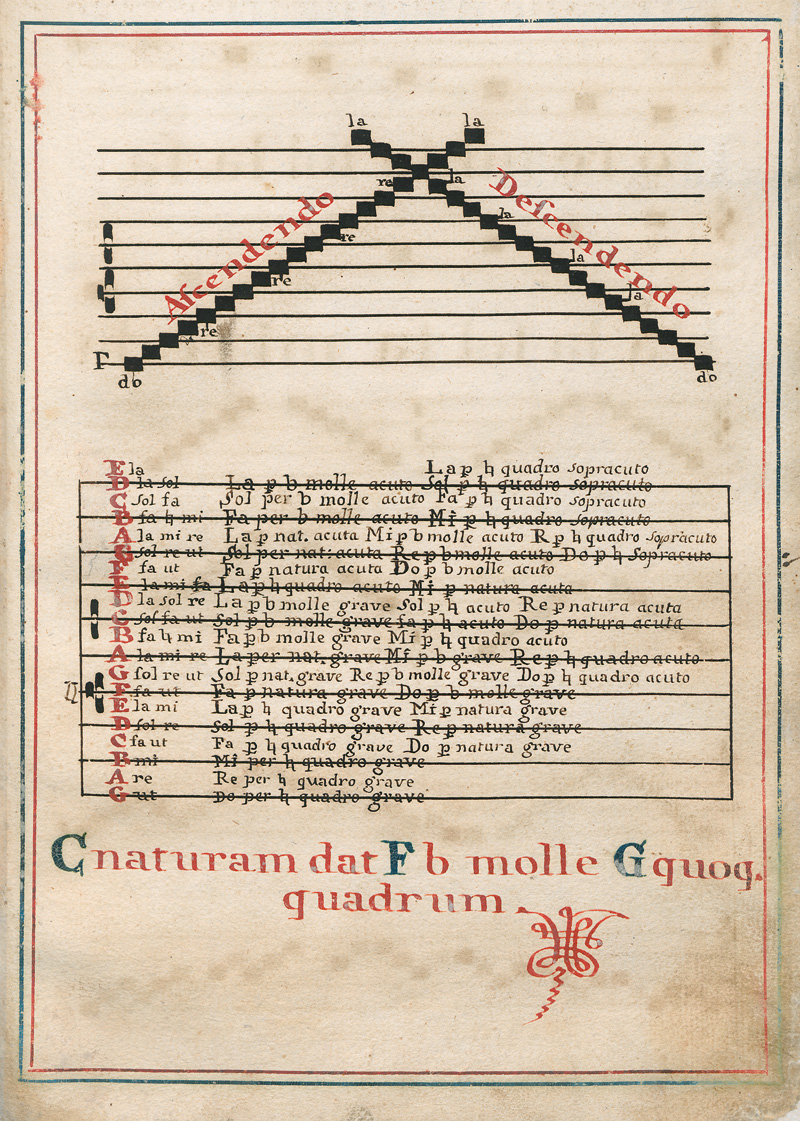 la la
re la
Ascendendo
Descendendo
re la
re la
re la
Γ
do do
E la La p̄ ♮ quadro sopracuto
D la sol La p̄ b molle acuto Sol p̄ ♮ quadro sopracuto
C sol fa Sol per b molle acuto Fa p̄ ♮ quadro sopracuto
B fa ♮ mi Fa per b molle acuto Mi p̄ ♮ quadro sopracuto
A la mi re La p̄ nat. acuta Mi p̄ b molle acuto R p̄ ♮ quadro sopracuto
G sol re ut Sol per nat: acuta Re p̄ b molle acuto Do p̄ ♮ Sopracuto
F fa ut Fa p̄ natura acuta Do p̄ b molle acuto
E la mi fa La p̄ ♮ quadro acuto Mi p̄ natura acuta
D la sol re La p̄ b molle grave Sol p̄ ♮ acuto Re p̄ natura acuta
C sol fa ut Sol p̄ b molle grave fa p̄ ♮ acuto Do p̄ natura acuta
B fa ♮ mi Fa p̄ b molle grave Mi p̄ ♮ quadro acuto
A la mi re La per nat. grave Mi p̄ b grave Re p̄ ♮ quadro acuto
G sol re ut Sol p̄ nat. grave Re p̄ b molle grave Do p̄ ♮ quadro acuto
F fa ut Fa p̄ natura grave Do p̄ b molle grave
E la mi La p̄ ♮ quadro grave Mi p̄ natura grave
D sol re Sol p̄ ♮ quadro grave Re p̄ natura grave
C fa ut Fa p̄ ♮ quadro grave Do p̄ natura grave
B mi Mi per ♮ quadro grave
A re Re per ♮ quadro grave
G ut Do per ♮ quadro grave
C naturam dat F b molle G quoq.
quadrum.